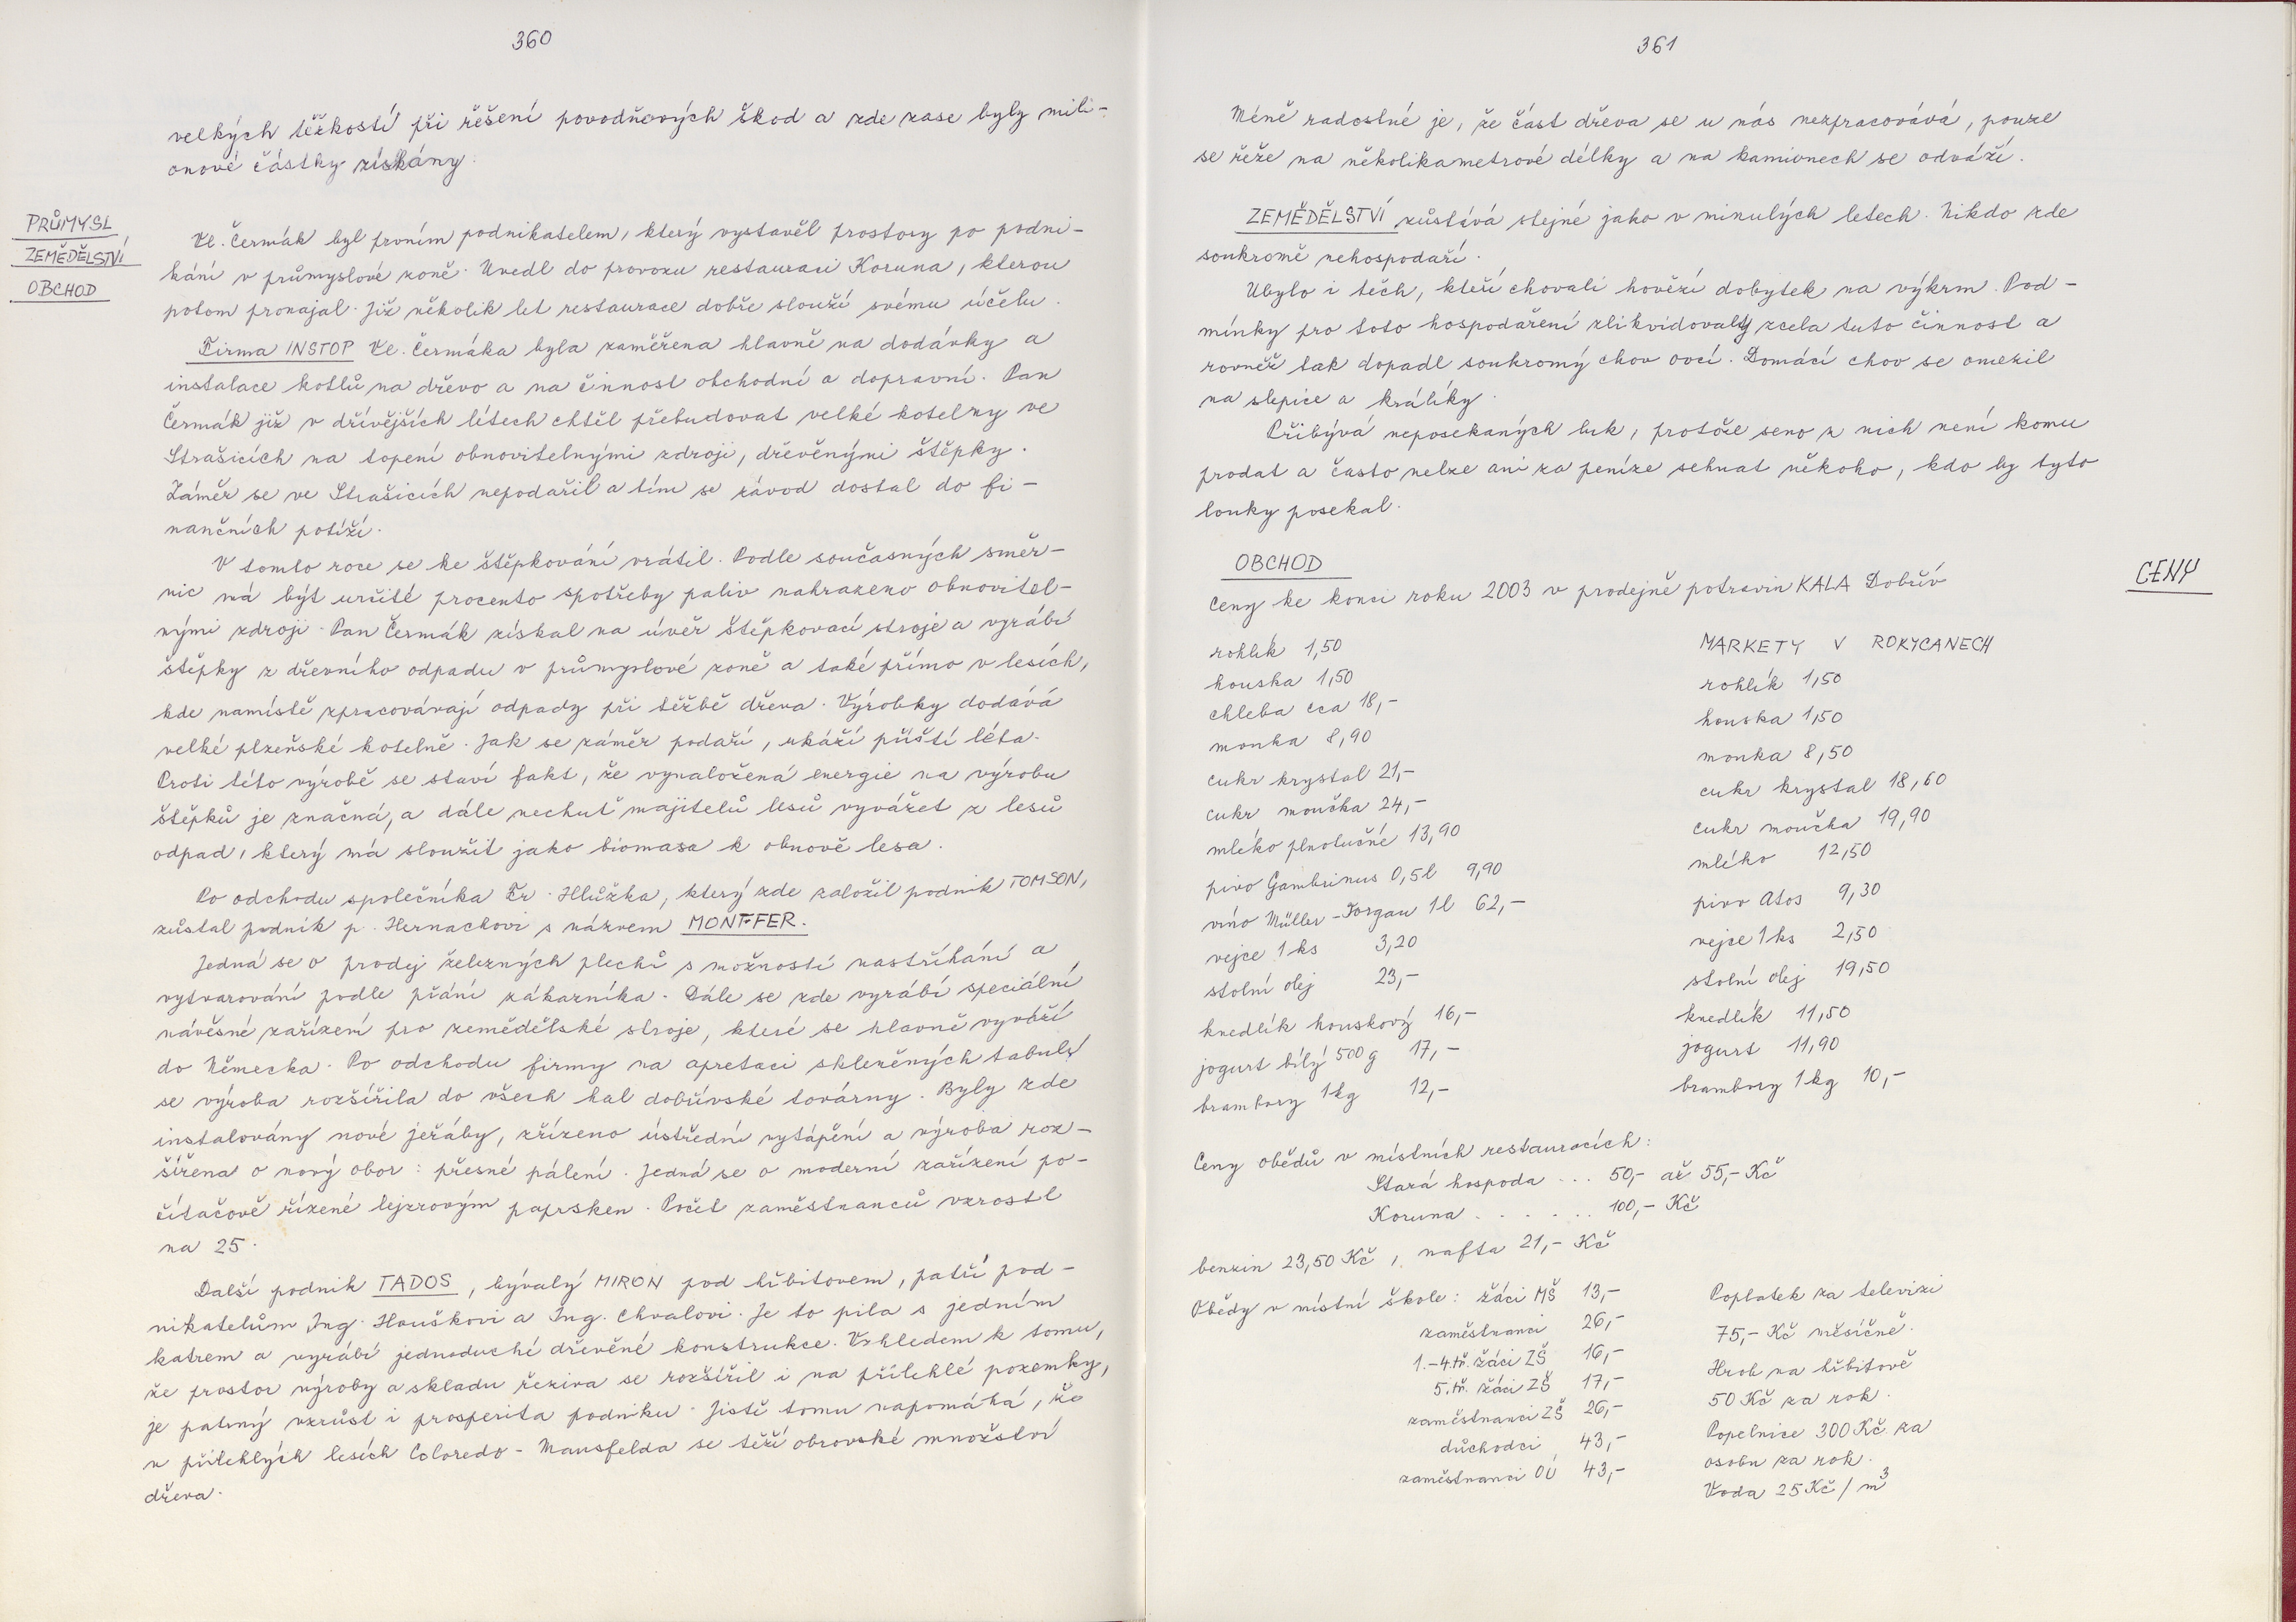 360
velkých těžkostí při řešení povodňových škod a zde zase byly mili-
onové částky získány.
PRŮMYSL,
ZEMĚDĚLSTVÍ
OBCHOD
Vl. Čermák byl prvním podnikatelem, který vystavěl prostory po podni-
kání v průmyslové zoně. Uvedl do provozu restauraci Koruna, kterou
potom pronajal. Již několik let restaurace dobře slouží svému účelu.
Firma INSTOP Vl. Čermáka byla zaměřena hlavně na dodávky a
instalace kotlů na dřevo a na činnost obchodní a dopravní. Pan
Čermák již v dřívějších létech chtěl přebudovat velké kotelny ve
Strašicích na topení obnovitelnými zdroji, dřevěnými štěpky.
Záměr se ve Strašicích nepodařil a tím se závod dostal do fi-
nančních potíží.
V tomto roce se ke štěpkování vrátil. Podle současných směr-
nic má být určité procento spotřeby paliv nahrazeno obnovitel-
nými zdroji. Pan Čermák získal na úvěr štěpkovací stroje a vyrábí
štěpky z dřevního odpadu v průmyslové zoně a také přímo v lesích,
kde namístě zpracovávají odpady při těžbě dřeva. Výrobky dodává
velké plzeňské kotelně. Jak se záměr podaří, ukáží příští léta.
Proti této výrobě se staví fakt, že vynaložená energie na výrobu
štěpků je značná, a dále nechuť majitelů lesů vyvážet z lesů
odpad, který má sloužit jako biomasa k obnově lesa.
Po odchodu společníka Fr. Hlůžka, který zde založil podnik TOMSON,
zůstal podnik p. Hernachovi s názvem MONTFER.
Jedná se o prodej železných plechů s možností nastříhání a
vytvarování podle přání zákazníka. Dále se zde vyrábí speciální
návěsné zařízení pro zemědělské stroje, které se hlavně vyváží
do Německa. Po odchodu firmy na apretaci skleněných tabulí
se výroba rozšířila do všech hal dobřívské továrny. Byly zde
instalovány nové jeřáby, zřízeno ústřední vytápění a výroba roz-
šířena o nový obor: přesné pálení. Jedná se o moderní zařízení po-
čítačově řízené lejzrovým paprsken. Počet zaměstnanců vzrostl
na 25.
Další podnik TADOS, bývalý MIRON pod hřbitovem, patří pod-
nikatelům Ing. Houškovi a Ing. Chvalovi. Je to pila s jedním
katrem a vyrábí jednoduché dřevěné konstrukce. Vzhledem k tomu,
že prostor výroby a skladu řeziva se rozšířil i na přilehlé pozemky,
je patrný vzrůst i prosperita podniku. Jistě tomu napomáhá, že
v přilehlých lesích Coloredo-Mansfelda se těží obrovské množství
dřeva.
361
Méně radostné je, že část dřeva se u nás nezpracovává, pouze
se řeže na několikametrové délky a na kamionech se odváží.
ZEMĚDĚLSTVÍ zůstává stejné jako v minulých letech. Nikdo zde
soukromě nehospodaří.
Ubylo i těch, kteří chovali hovězí dobytek na výkrm. Pod-
mínky pro toto hospodaření zlikvidovaly zcela tuto činnost a
rovněž tak dopadl soukromý chov ovcí. Domácí chov se omezil
na slepice a králíky.
Přibývá neposekaných luk, protože seno z nich není komu
prodat a často nelze ani za peníze sehnat někoho, kdo by tyto
louky posekal.
OBCHOD
CENY
Ceny ke konci roku 2003 v prodejně potravin KALA Dobřív
rohlík 1,50
houska 1,50
chleba cca 18,-
mouka 8,90
cukr krystal 21,-
cukr moučka 24,-
mléko plnotučné 13,90
pivo Gambrinus 0,5l 9,90
víno Müller-Torgau 1l 62,-
vejce 1ks 3,20
stolní olej 23,-
knedlík houskový 16,-
jogurt bílý 500g 17,-
brambory 1kg 12,-
MARKETY V ROKYCANECH
rohlík 1,50
houska 1,50
mouka 8,50
cukr krystal 18,60
cukr moučka 19,90
mléko 12,50
pivo Atos 9,30
vejce 1ks 2,50
stolní olej 19,50
knedlík 11,50
jogurt 11,90
brambory 1kg 10,-
Ceny obědů v místních restauracích:
Stará hospoda ... 50,- až 55,- Kč
Koruna . . . . . . 100,- Kč
benzin 23,50 Kč, nafta 21,- Kč
Obědy v místní škole: žáci MŠ 13,-
zaměstnanci 26,-
1.-4.tř. žáci ZŠ 16,-
5.tř. žáci ZŠ 17,-
zaměstnanci ZŠ 26,-
důchodci 43,-
zaměstnanci OÚ 43,-
Poplatek za televizi
75,- Kč měsíčně.
Hrob na hřbitově
50 Kč za rok.
Popelnice 300 Kč za
osobu za rok.
Voda 25 Kč/m³